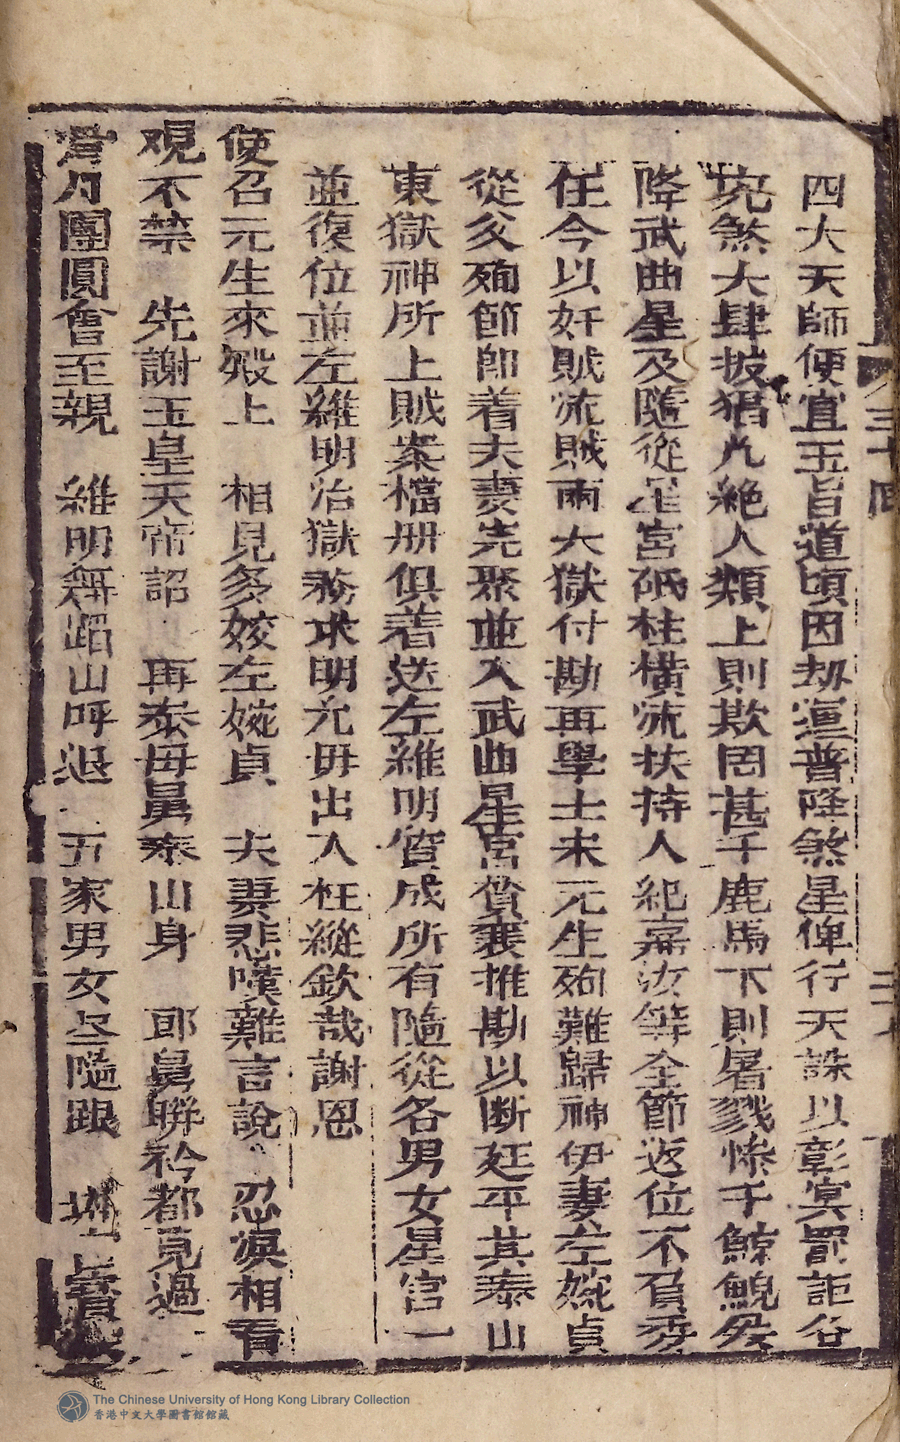 四大天師便宜玉旨道頃因劫運普降煞星俾行天誅以彰冥罰詎各
兇煞大肆披猖凢絶人類上則欺罔甚千鹿馬下則屠戮慘千鯨鯢爰
降武曲星及隨從星宮砥柱橫流扶持人紀嘉汝等全節返位不負委
任今以奸賊流賊兩大獄付勘再學士米元生殉難歸神伊妻左婉貞
從父殉節即着夫妻完聚並入武曲星宮賛襄推勘以断廷平其泰山
東獄神所上賊案檔册俱着送左維明質成所有隨從各男女星官一
並復位並左維明治獄務求明允毋出入枉縱欽哉謝恩
使召元生來殿上　相見多姣左婉貞　夫妻悲嘆難言說　忍淚相看
覌不禁　先謝玉皇天帝詔　再泰毋舅泰山身　郎舅聨衿都見過
月團圓會至親　維明無蹈山呼退　五家男女盡隨跟
三十四
The Chinese University of Hong Kong Library Collection
香港中文大學圖書館館藏